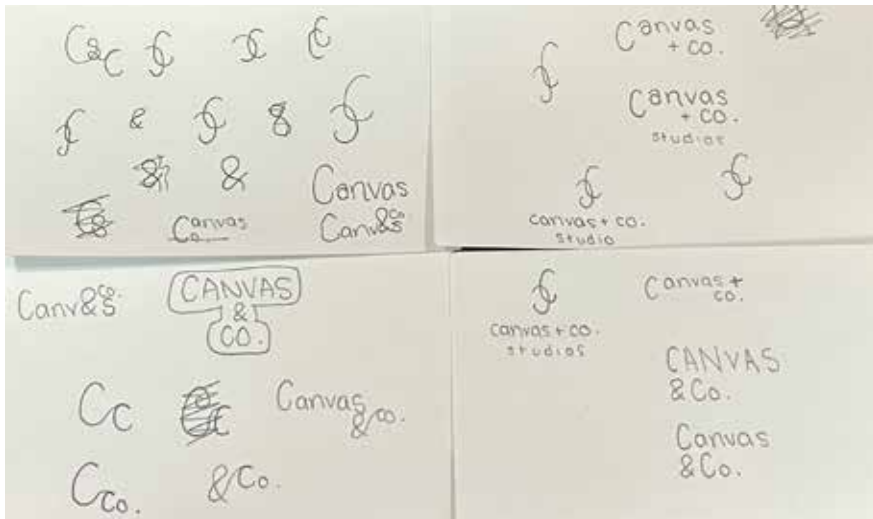 C&C
&
&
&
Canvas
Canvas
Co.
Canv&S
Co
Canvas
+ co.
Canvas
+ co.
studios
canvas + co.
studio
Canv&S
Co.
CANVAS
&
CO.
CC
Canvas
& co.
Cco.
&Co.
canvas + co.
studios
Canvas +
co.
CANVAS
& Co.
Canvas
& Co.